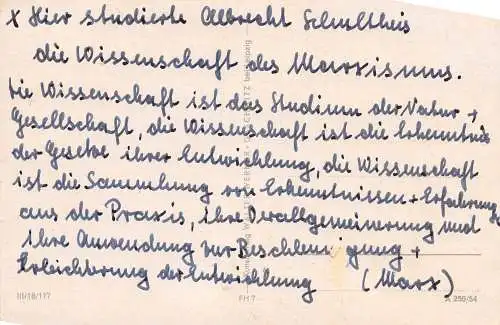 x Hier studierte Albrecht Schultheis
die Wissenschaft des Marxismus.
Die Wissenschaft ist das Studium der Natur +
Gesellschaft, die Wissenschaft ist die Erkenntnis
der Gesetze ihrer Entwicklung, die Wissenschaft
ist die Sammlung von Erkenntnissen + Erfahrung
aus der Praxis, ihre Verallgemeinerung und
ihre Anwendung zur Beschleunigung +
Erleichterung der Entwicklung (Marx)
III/18/117 FH 7 A 256/54